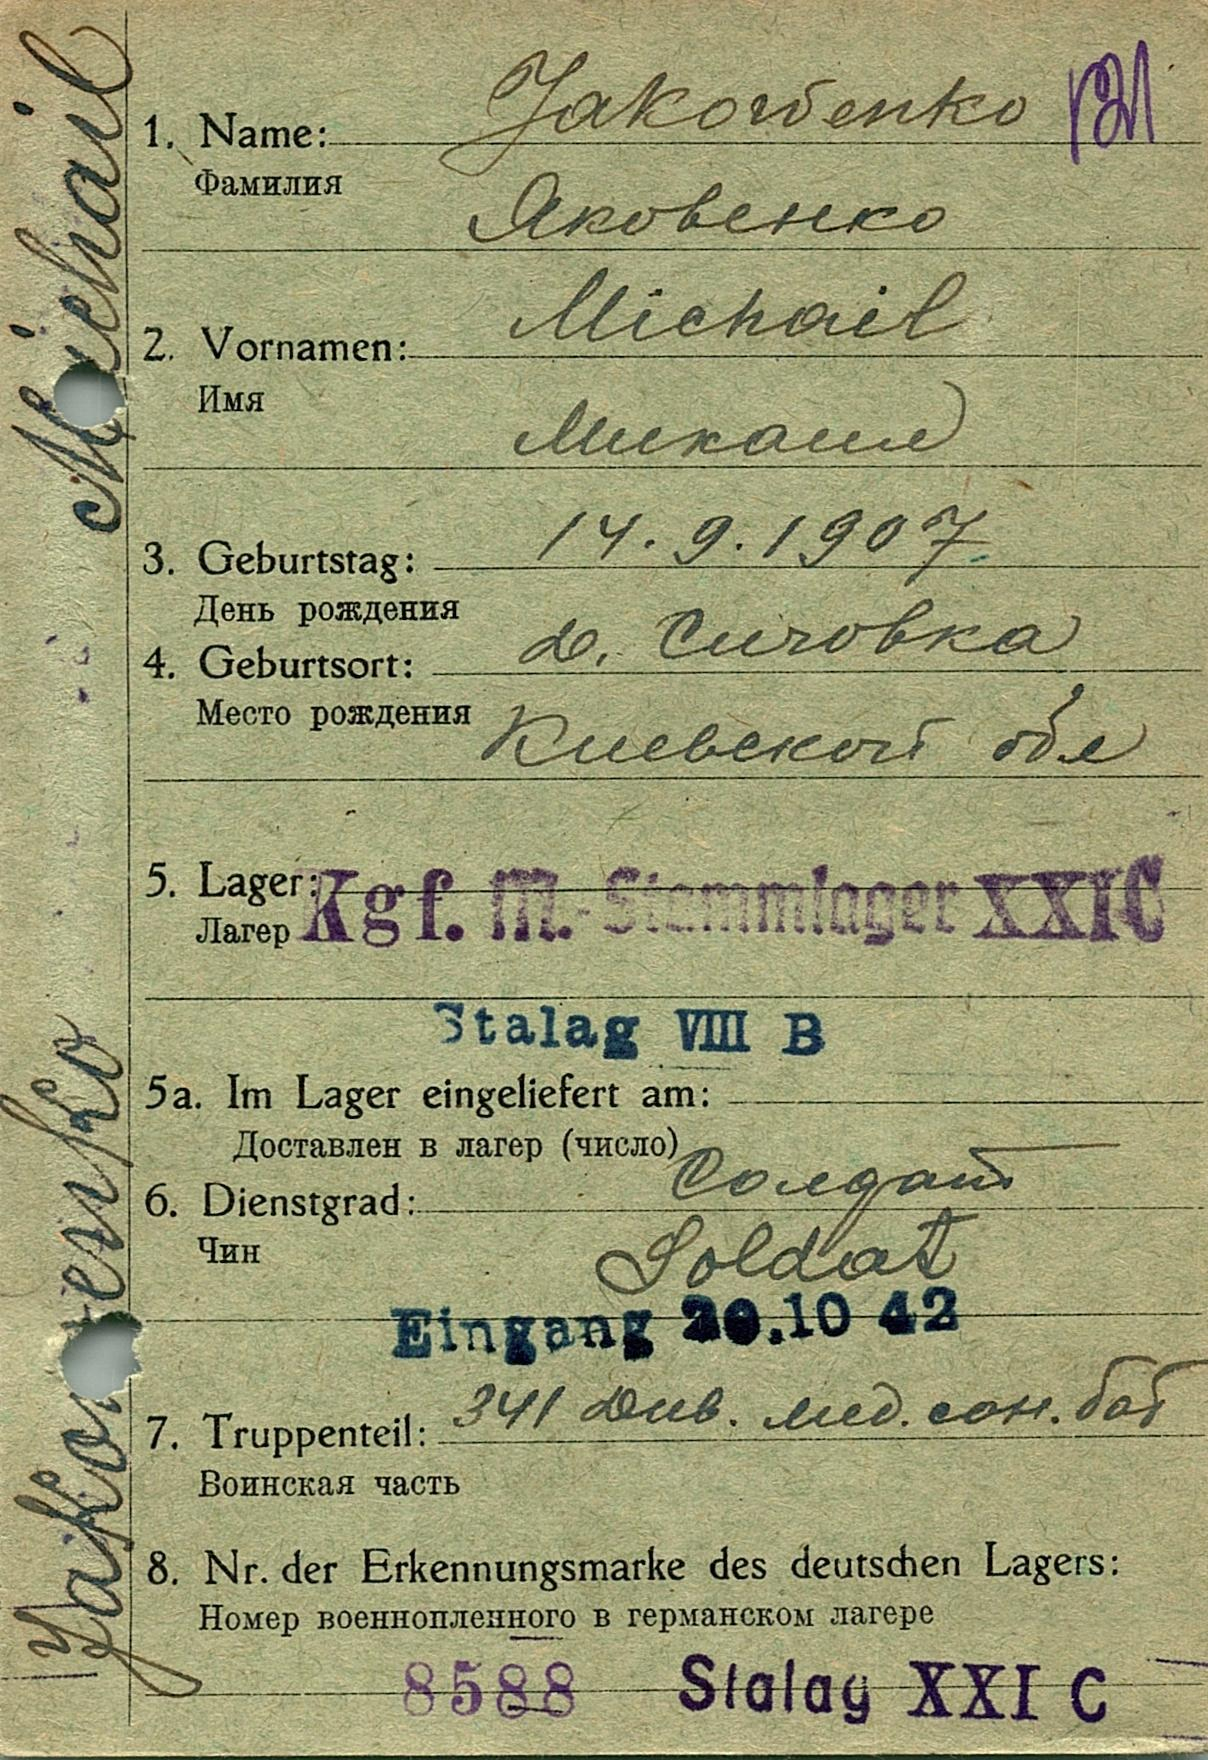 1. Name: Jakowenko
Фамилия Яковенко
2. Vornamen: Michail
Имя Микаил
3. Geburtstag: 14.9.1907
День рождения
4. Geburtsort: д. Сичовка
Место рождения Киевской обл
5. Lager: Kgf. M.-Stammlager XXIC
Лагер
Stalag VIII B
5a. Im Lager eingeliefert am:
Доставлен в лагер (число)
6. Dienstgrad: Солдат
Чин Soldat
Eingang 20.10 42
7. Truppenteil: 341 Див. мед. сан. бат
Воинская часть
8. Nr. der Erkennungsmarke des deutschen Lagers:
Номер военнопленного в германском лагере
8588 Stalag XXI C
Jakowenko Michail